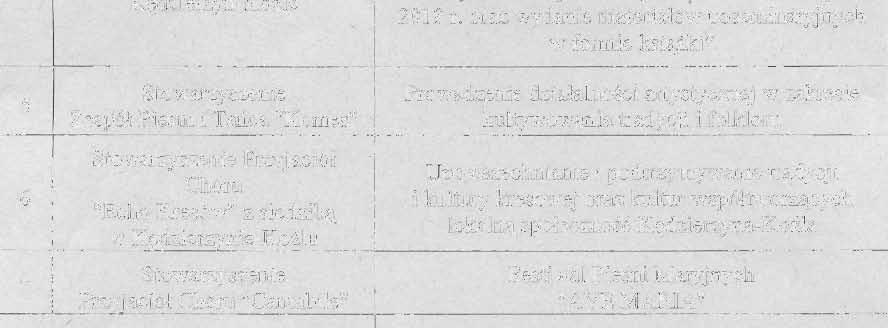 Kędzierzyn-Koźle
2019 r. oraz wydanie materiałów
w formie książki"
5
Stowarzyszenie
Zespół Pieśni i Tańca "Komes"
Prowadzenie działalności artystycznej w zakresie
kultywowania tradycji i folkloru
6
Stowarzyszenie Przyjaciół
Chóru
"Echo Kresów" z siedzibą
w Kędzierzynie-Koźlu
Upowszechnianie i podtrzymywanie tradycji
i kultury kresowej oraz kultur współtworzących
lokalną społeczność Kędzierzyna-Koźla
Stowarzyszenie
Przyjaciół Chóru "Cantabile"
Festiwal Pieśni Maryjnych
"AVE MARIA"